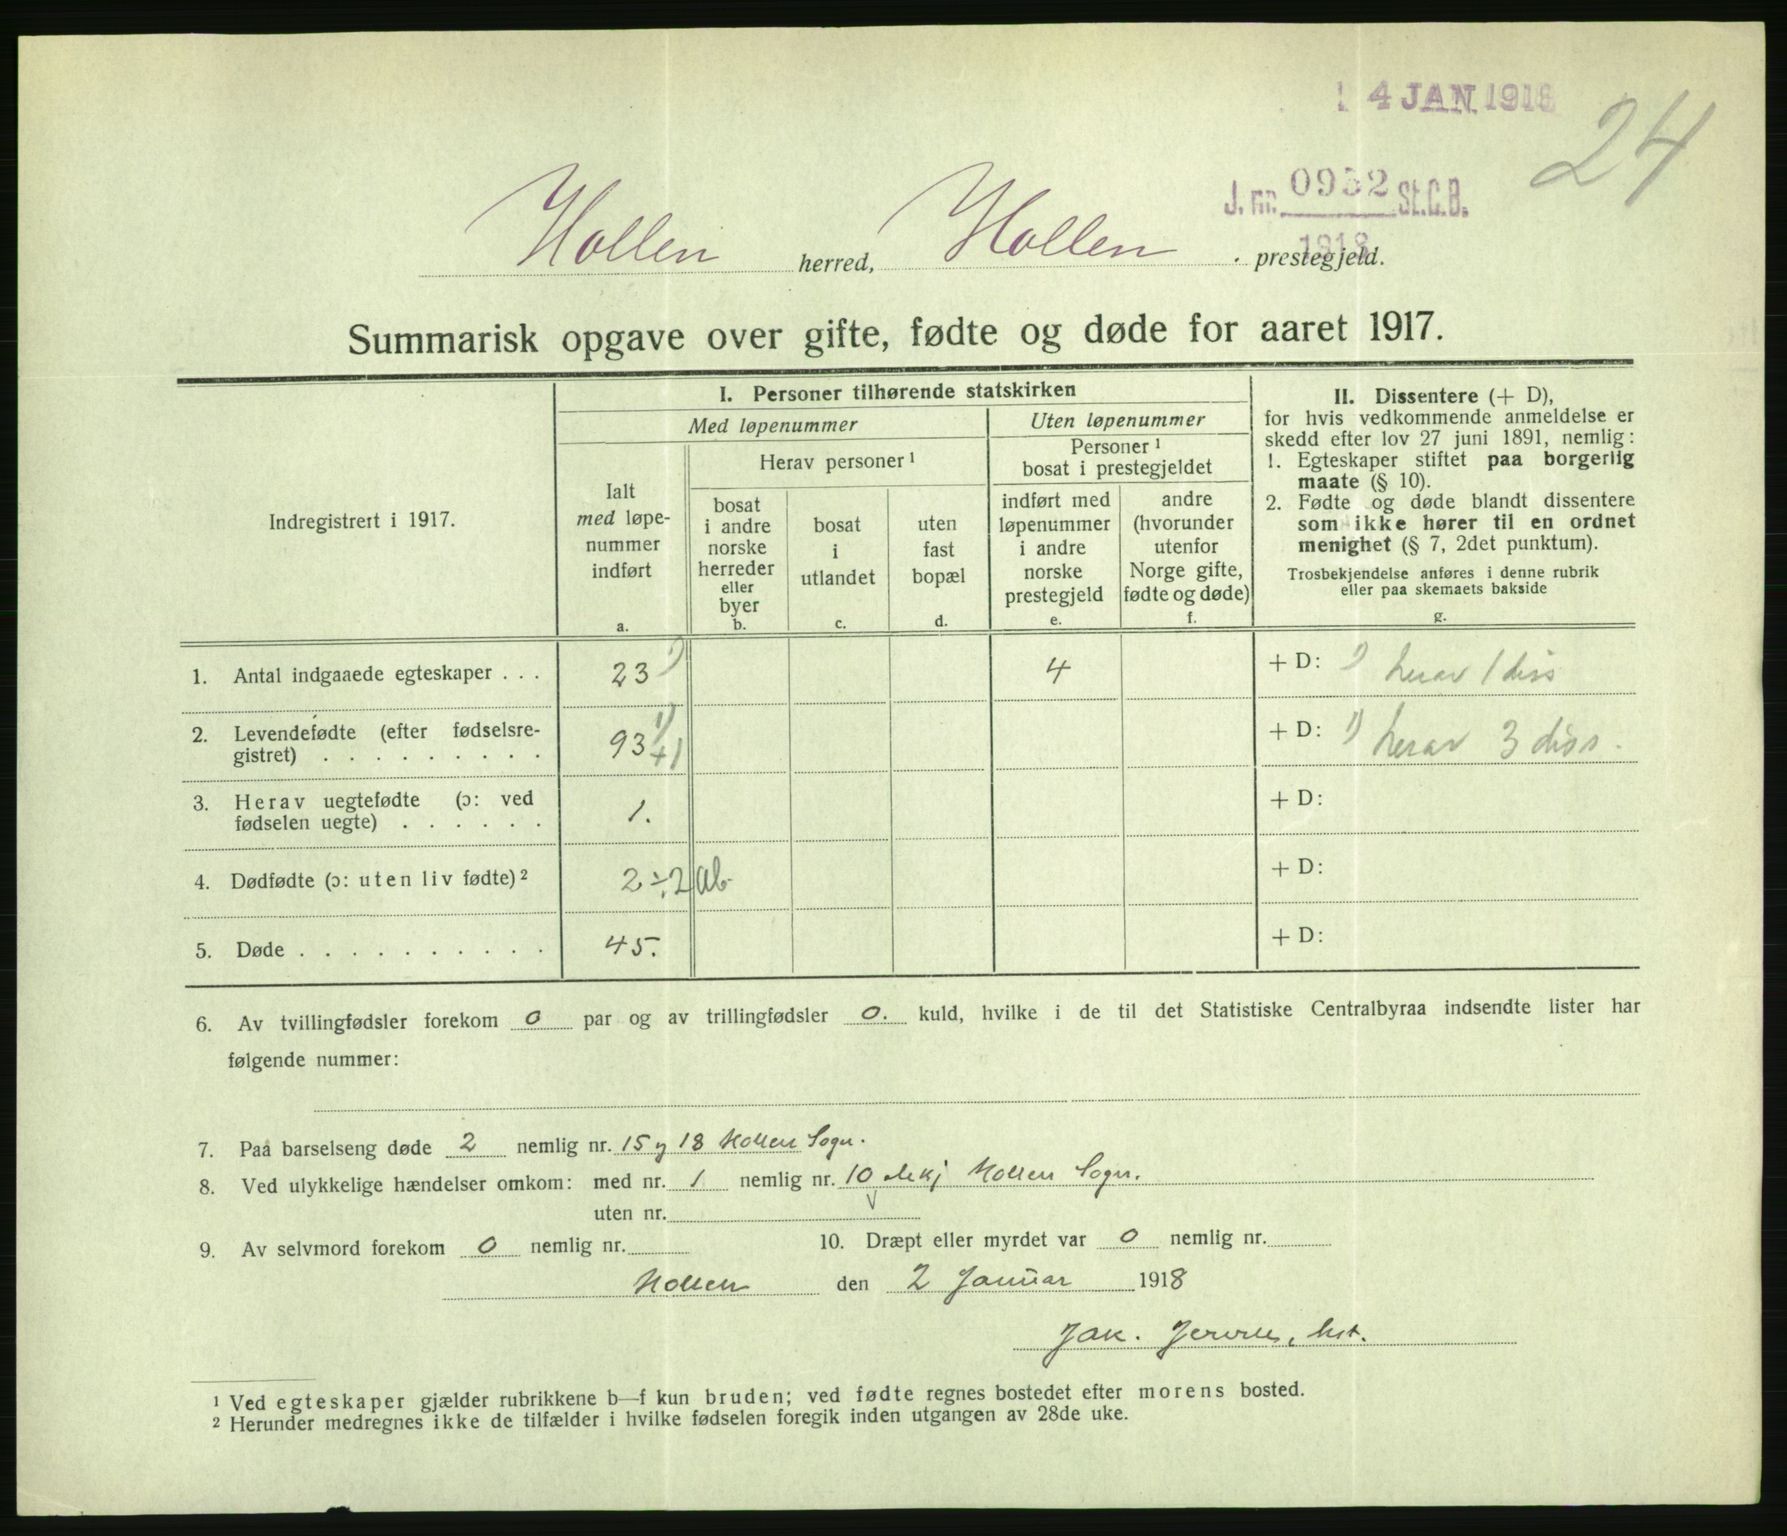 4 JAN. 1918
24
J. nr. 0952 St.C.B.
1918
Hollen herred, Hollen prestegjeld.
Summarisk opgave over gifte, fødte og døde for aaret 1917.
Indregistrert i 1917.
I. Personer tilhørende statskirken
Med løpenummer
Uten løpenummer
Ialt
med løpe-
nummer
indført
a.
Herav personer ¹
bosat
i andre
norske
herreder
eller
byer
b.
bosat
i
utlandet
c.
uten
fast
bopæl
d.
Personer ¹
bosat i prestegjeldet
indført med
løpenummer
i andre
norske
prestegjeld
e.
andre
(hvorunder
utenfor
Norge gifte,
fødte og døde)
f.
II. Dissentere (+ D),
for hvis vedkommende anmeldelse er
skedd efter lov 27 juni 1891, nemlig:
1. Egteskaper stiftet paa borgerlig
maate (§ 10).
2. Fødte og døde blandt dissentere
som ikke hører til en ordnet
menighet (§ 7, 2det punktum).
Trosbekjendelse anføres i denne rubrik
eller paa skemaets bakside
g.
1. Antal indgaaede egteskaper . . . 23 ¹) 4 + D: ¹) herav 1 diss
2. Levendefødte (efter fødselsre-
gistret) . . . . . . . . . 93 ¹) +1 + D: ¹) herav 3 diss.
3. Herav uegtefødte (ɔ: ved
fødselen uegte) . . . . . . 1. + D:
4. Dødfødte (ɔ: uten liv fødte) ² 2 ÷ 2 ab. + D:
5. Døde . . . . . . . . . . 45. + D:
6. Av tvillingfødsler forekom 0 par og av trillingfødsler 0. kuld, hvilke i de til det Statistiske Centralbyraa indsendte lister har
følgende nummer:
7. Paa barselseng døde 2 nemlig nr. 15 og 18 Hollen Sogn.
8. Ved ulykkelige hændelser omkom: med nr. 1 nemlig nr. 10 Hollen Sogn.
uten nr.
9. Av selvmord forekom 0 nemlig nr. 10. Dræpt eller myrdet var 0 nemlig nr.
Hollen den 2 Januar 1918
Jak.
¹ Ved egteskaper gjælder rubrikkene b—f kun bruden; ved fødte regnes bostedet efter morens bosted.
² Herunder medregnes ikke de tilfælder i hvilke fødselen foregik inden utgangen av 28de uke.